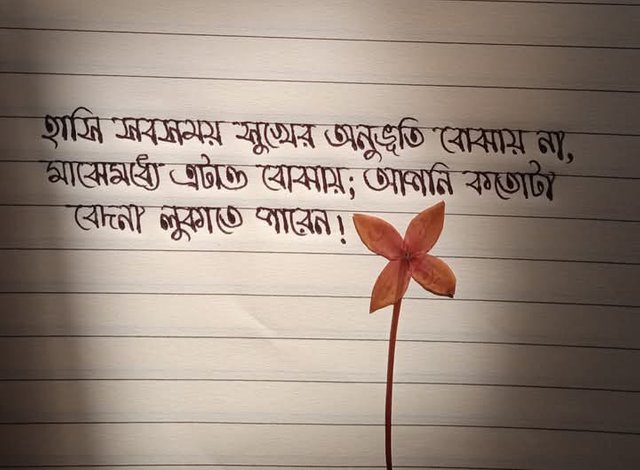 হাসি সবসময় সুখের অনুভূতি বোঝায় না,
মাঝেমধ্যে এটাও বোঝায়; আপনি কতোটা
বেদনা লুকাতে পারেন!